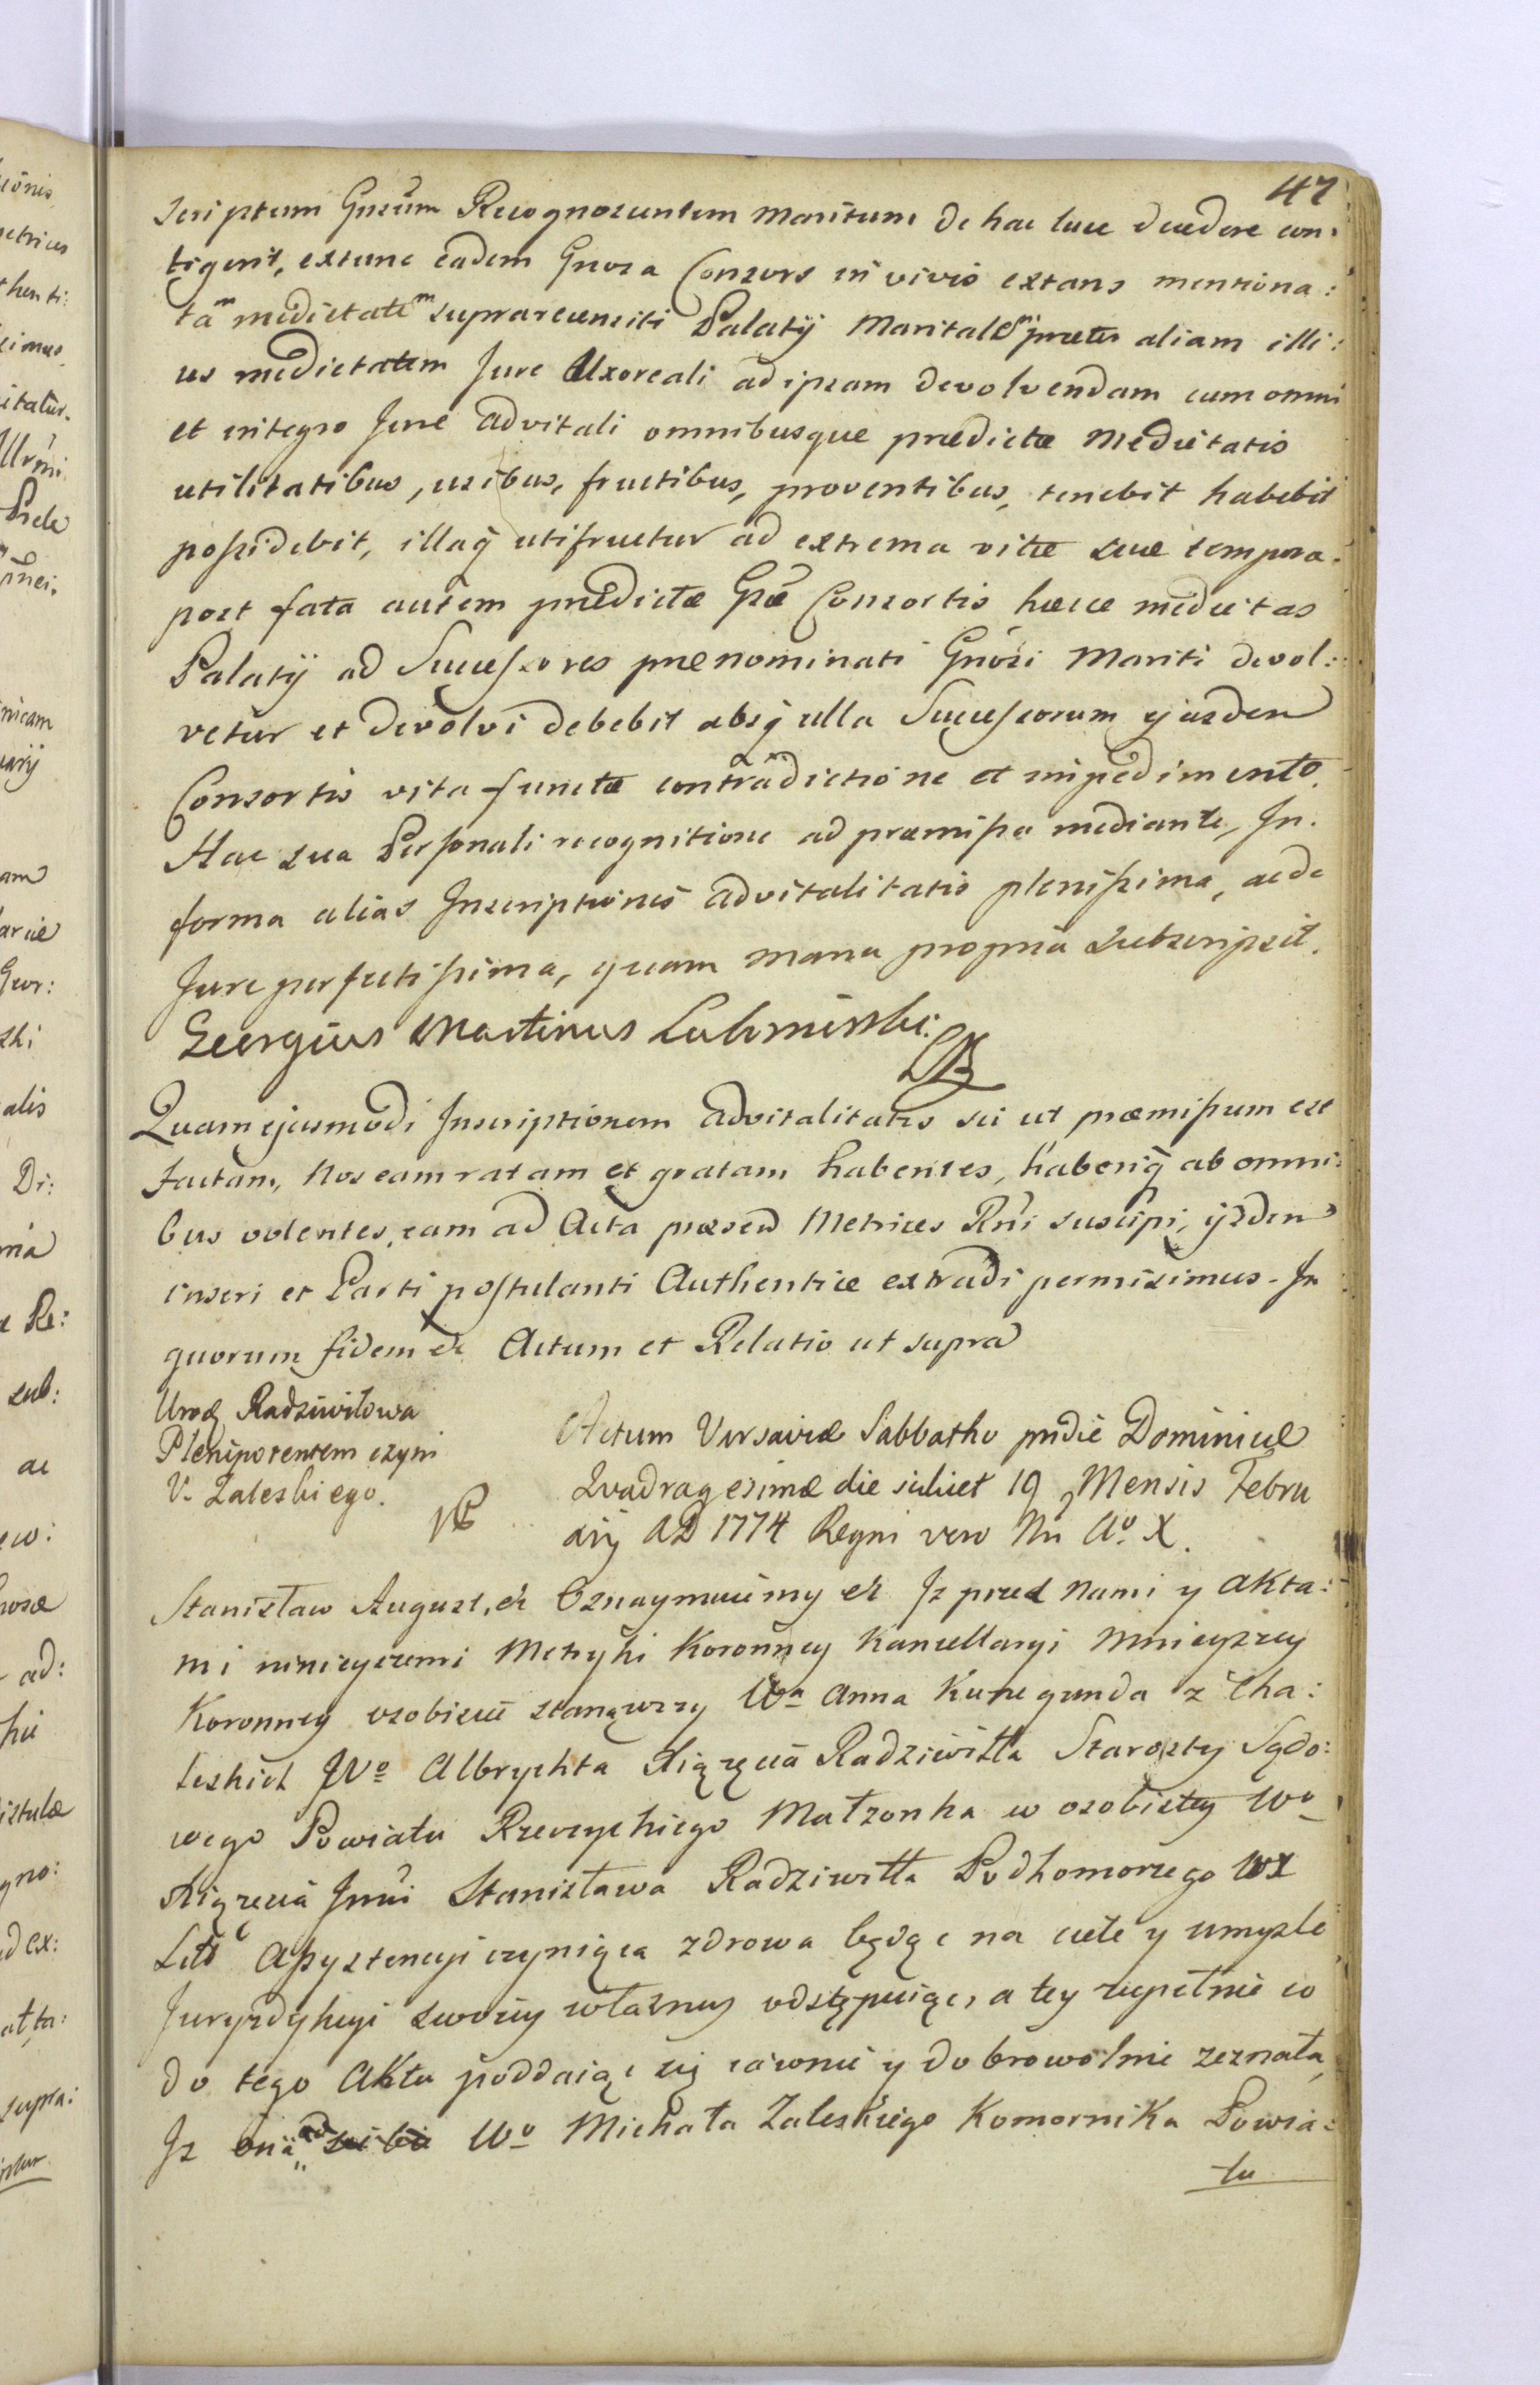 47
scriptum Gnrūm Recognoscentem Maritum de hac luce decedere con:
tigerit, extunc eadem Gnosa Consors in vivis extans mentiona:
tam medietatem suprarecensiti Palatÿ Maritalem præter aliam illi:
us medietatem Jure Uxoreali ad ipsam devolvendam cum omni
et integro Jure advitali omnibusque prædictæ Medietatis
utilitatibus, usibus, fructibus, proventibus, tenebit habebit
possidebit, illaq̃ utifruetur ad extrema vitæ suæ tempora.
post fata autem prædictæ Gsæ Consortis hæcce medietas
Palatÿ ad Successores prænominati Gnosi Mariti devol:
vetur et devolvi debebit absq̃ ulla Successorum ejusdem
Consortis vita functæ contradictione et impedimento.
Hac sua Personali recognitione ad præmissa mediante, In
forma alias Inscriptionis advitalitatis plenissima, ac de
Jure perfectissima, quam manu propria subscripsit.
Georgius Martinus Lubminski:
Quam ejusmodi Inscriptionem advitalitatis sic ut præmissum est
factam, Nos eam ratam et gratam habentes, haberiq̃ ab omni:
bus volentes, eam ad Acta præsen Metrices Rni suscipi, ÿsdem
inseri et Parti postulanti Authentice extradi permisimus. In
quorum fidem &c Actum et Relatio ut supra
Urod Radziwiłowa
Plenipotentem czyni
V. Zaleskiego.
Actum Varsaviæ Sabbatho pridie Dominicæ
Quadragesimæ die scilicet 19 Mensis Febru
arÿ AD 1774 Regni vero Nri Ao X.
Stanisław August, &c Oznaymuiemy &c Iz przed Nami y Akta:
mi ninieyszemi Metryki Koronney Kancellaryi Mnieyszey
Koronney osobiscie stanąwszy Wa Anna Kunegunda z Cha:
leskich JWo Albrychta Xiążęcia Radziwiłła Starosty Sądo:
wego Powiatu Rzeczyckiego Małzonka w osobistey Wo
Xiążęcia Jmci Stanisława Radziwiłła Podkomorzego WX
Litt Assystencyi czyniąca zdrowa będąc na ciele y umysle
Juryzdykcyi swoiey własney odstępuiąc, a tey zupełnie co
do tego Aktu poddaiąc się iawnie y dobrowolnie zeznała,
Iz ad Wo Michała Zaleskiego Komornika Powia:
tu